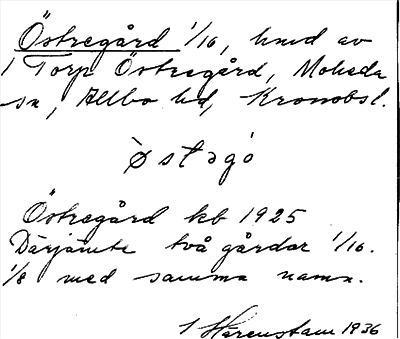 Östregård 1/16, hmd av
1 Torp Östregård, Moheda
sn, Allbo hd, Kronobsl.
`østəgó
Östregård kb 1925
Därjämte två gårdar 1/16.
1/8 med samma namn.
I Hårenstam 1936